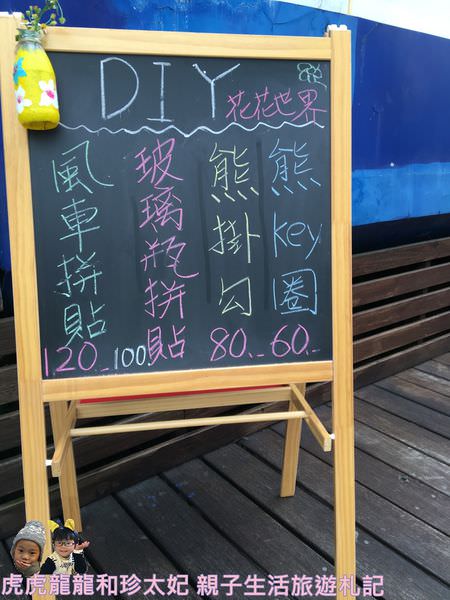 DIY
花花世界
熊key圈
60.-
熊掛勾
80.-
玻璃瓶拼貼
100
風車拼貼
120.-
虎虎龍龍和珍太妃 親子生活旅遊札記